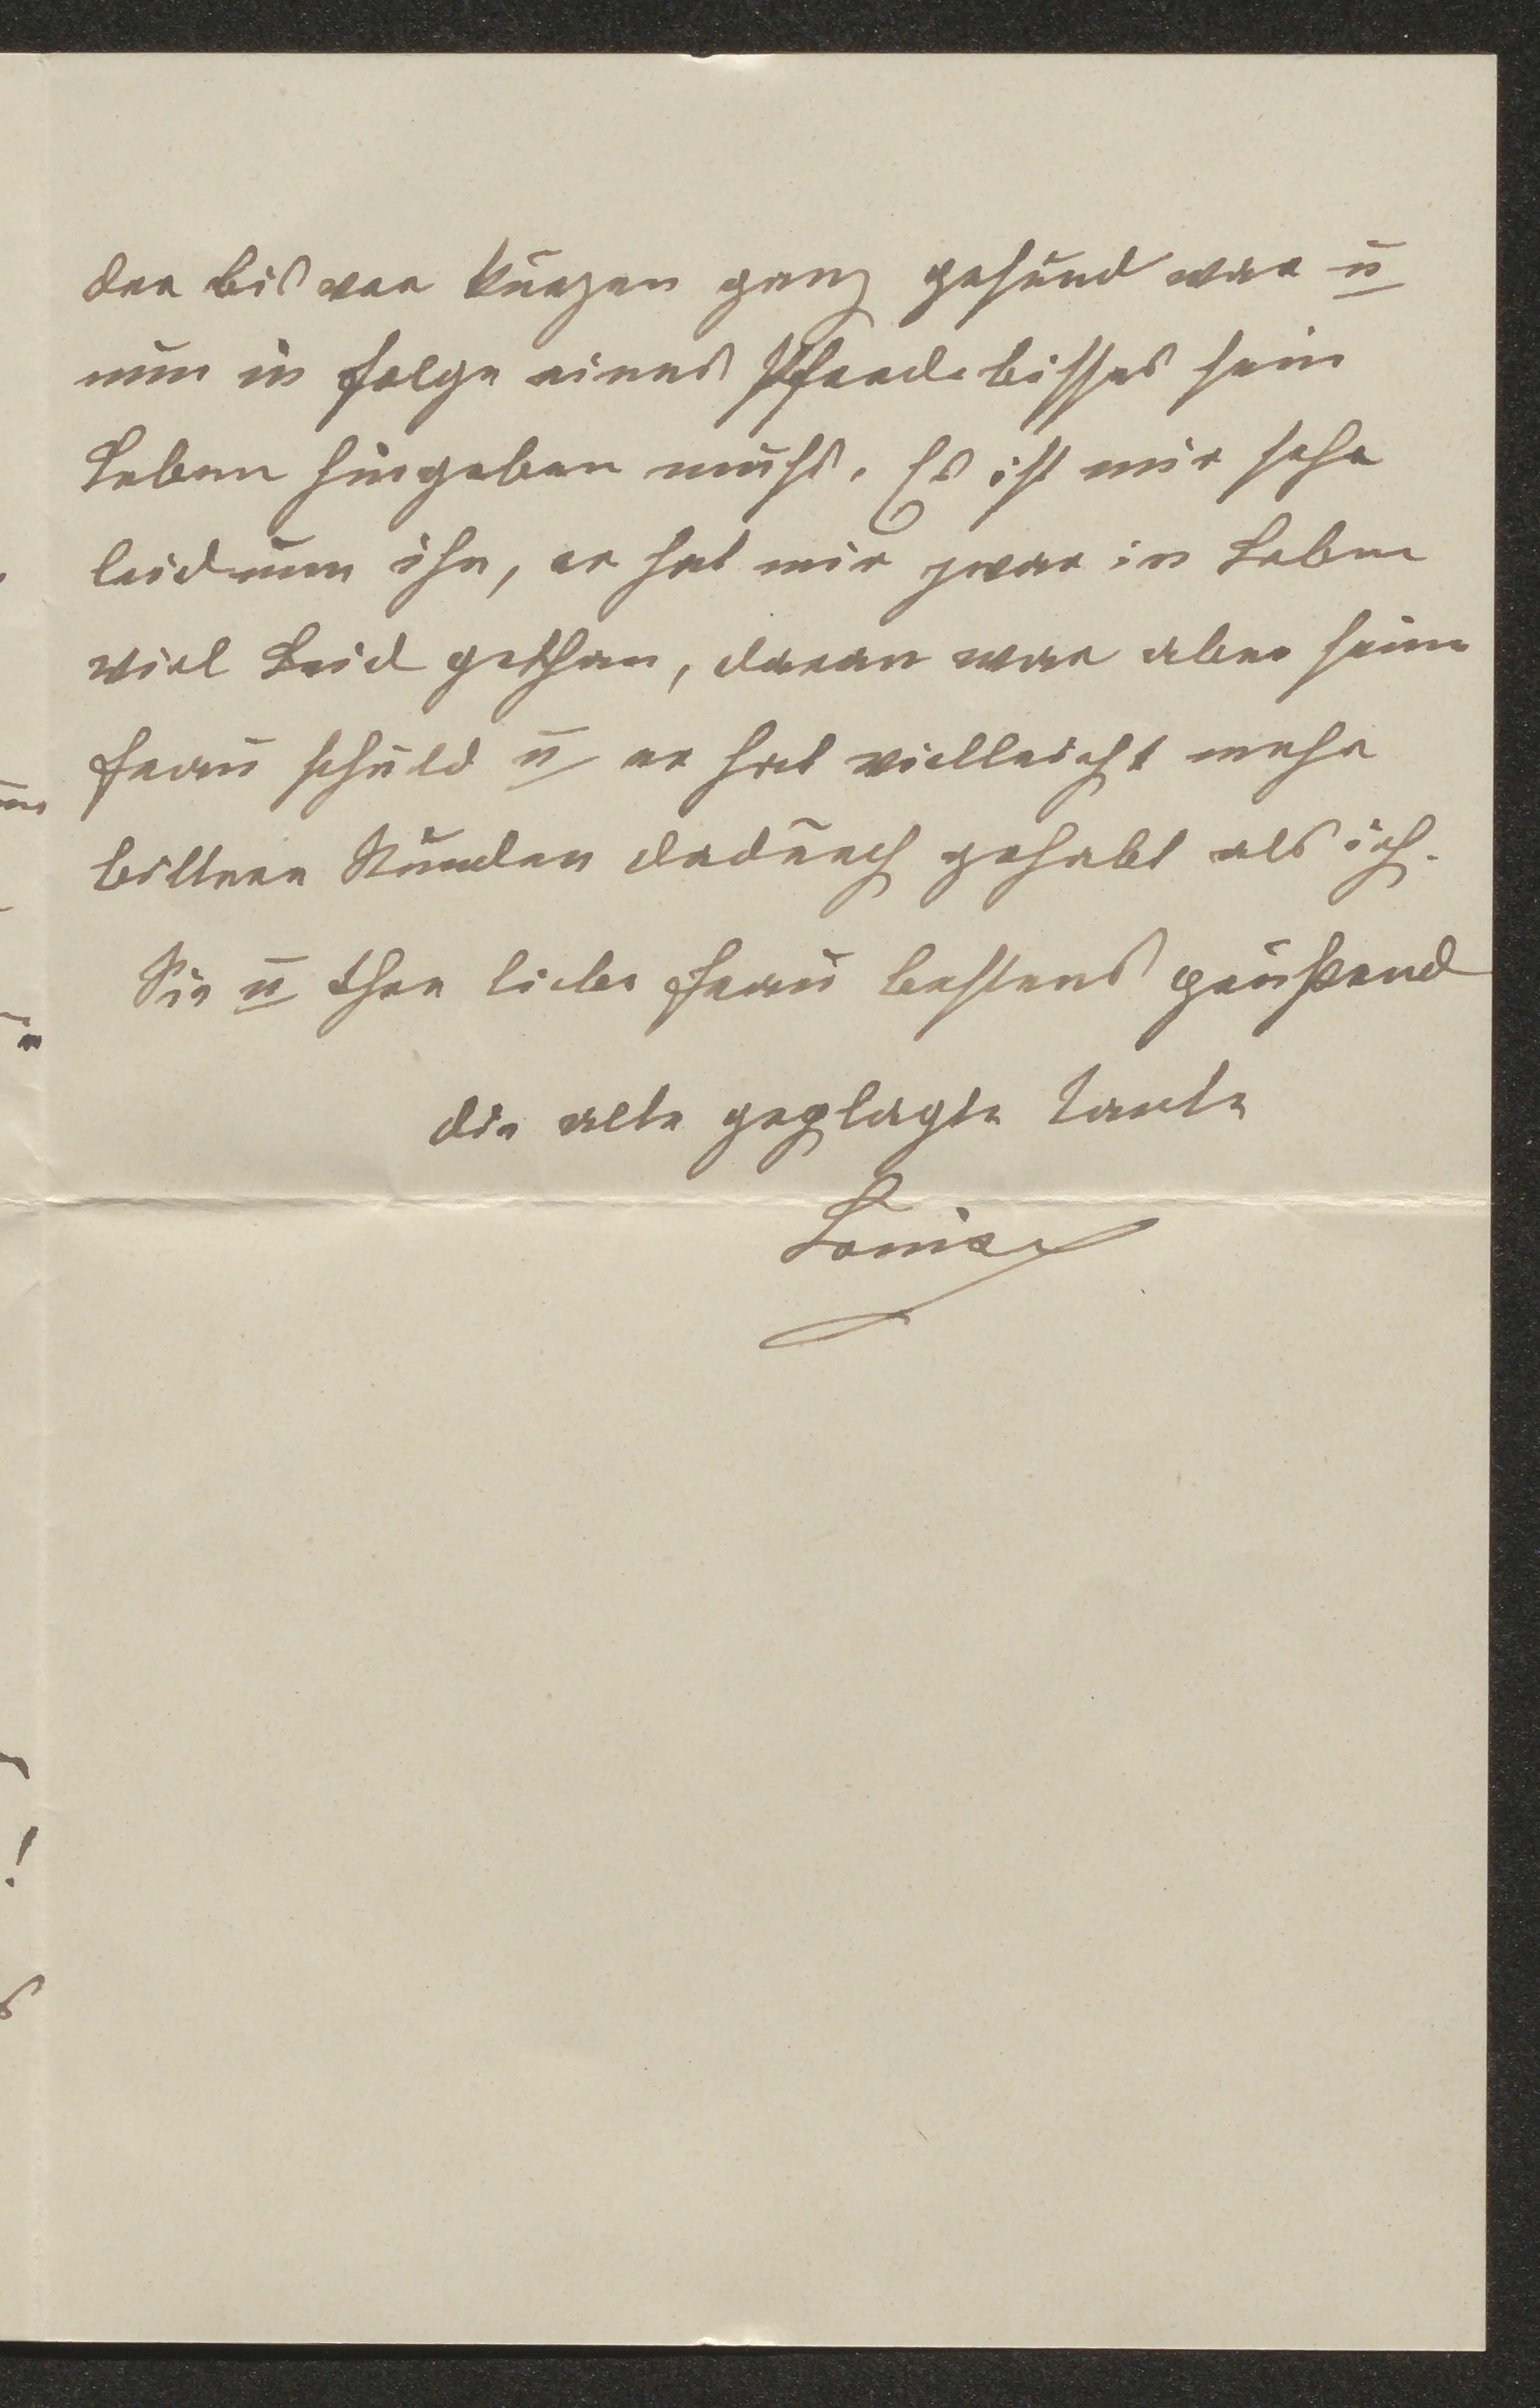 der bis vor kurzen ganz gesund war u
nun in folge eines Pferdebisses sein
Leben hingeben muß. Es ist mir sehr
leid um ihn, er hat mir zwar im Leben
viel Leid gethan, daran war aber seine
Frau schuld u er hat vielleicht mehr
bittere Stunden dadurch gehabt als ich.
Sie u Ihre liebe Frau bestens grüßend
die alte geplagte Tante
Louise